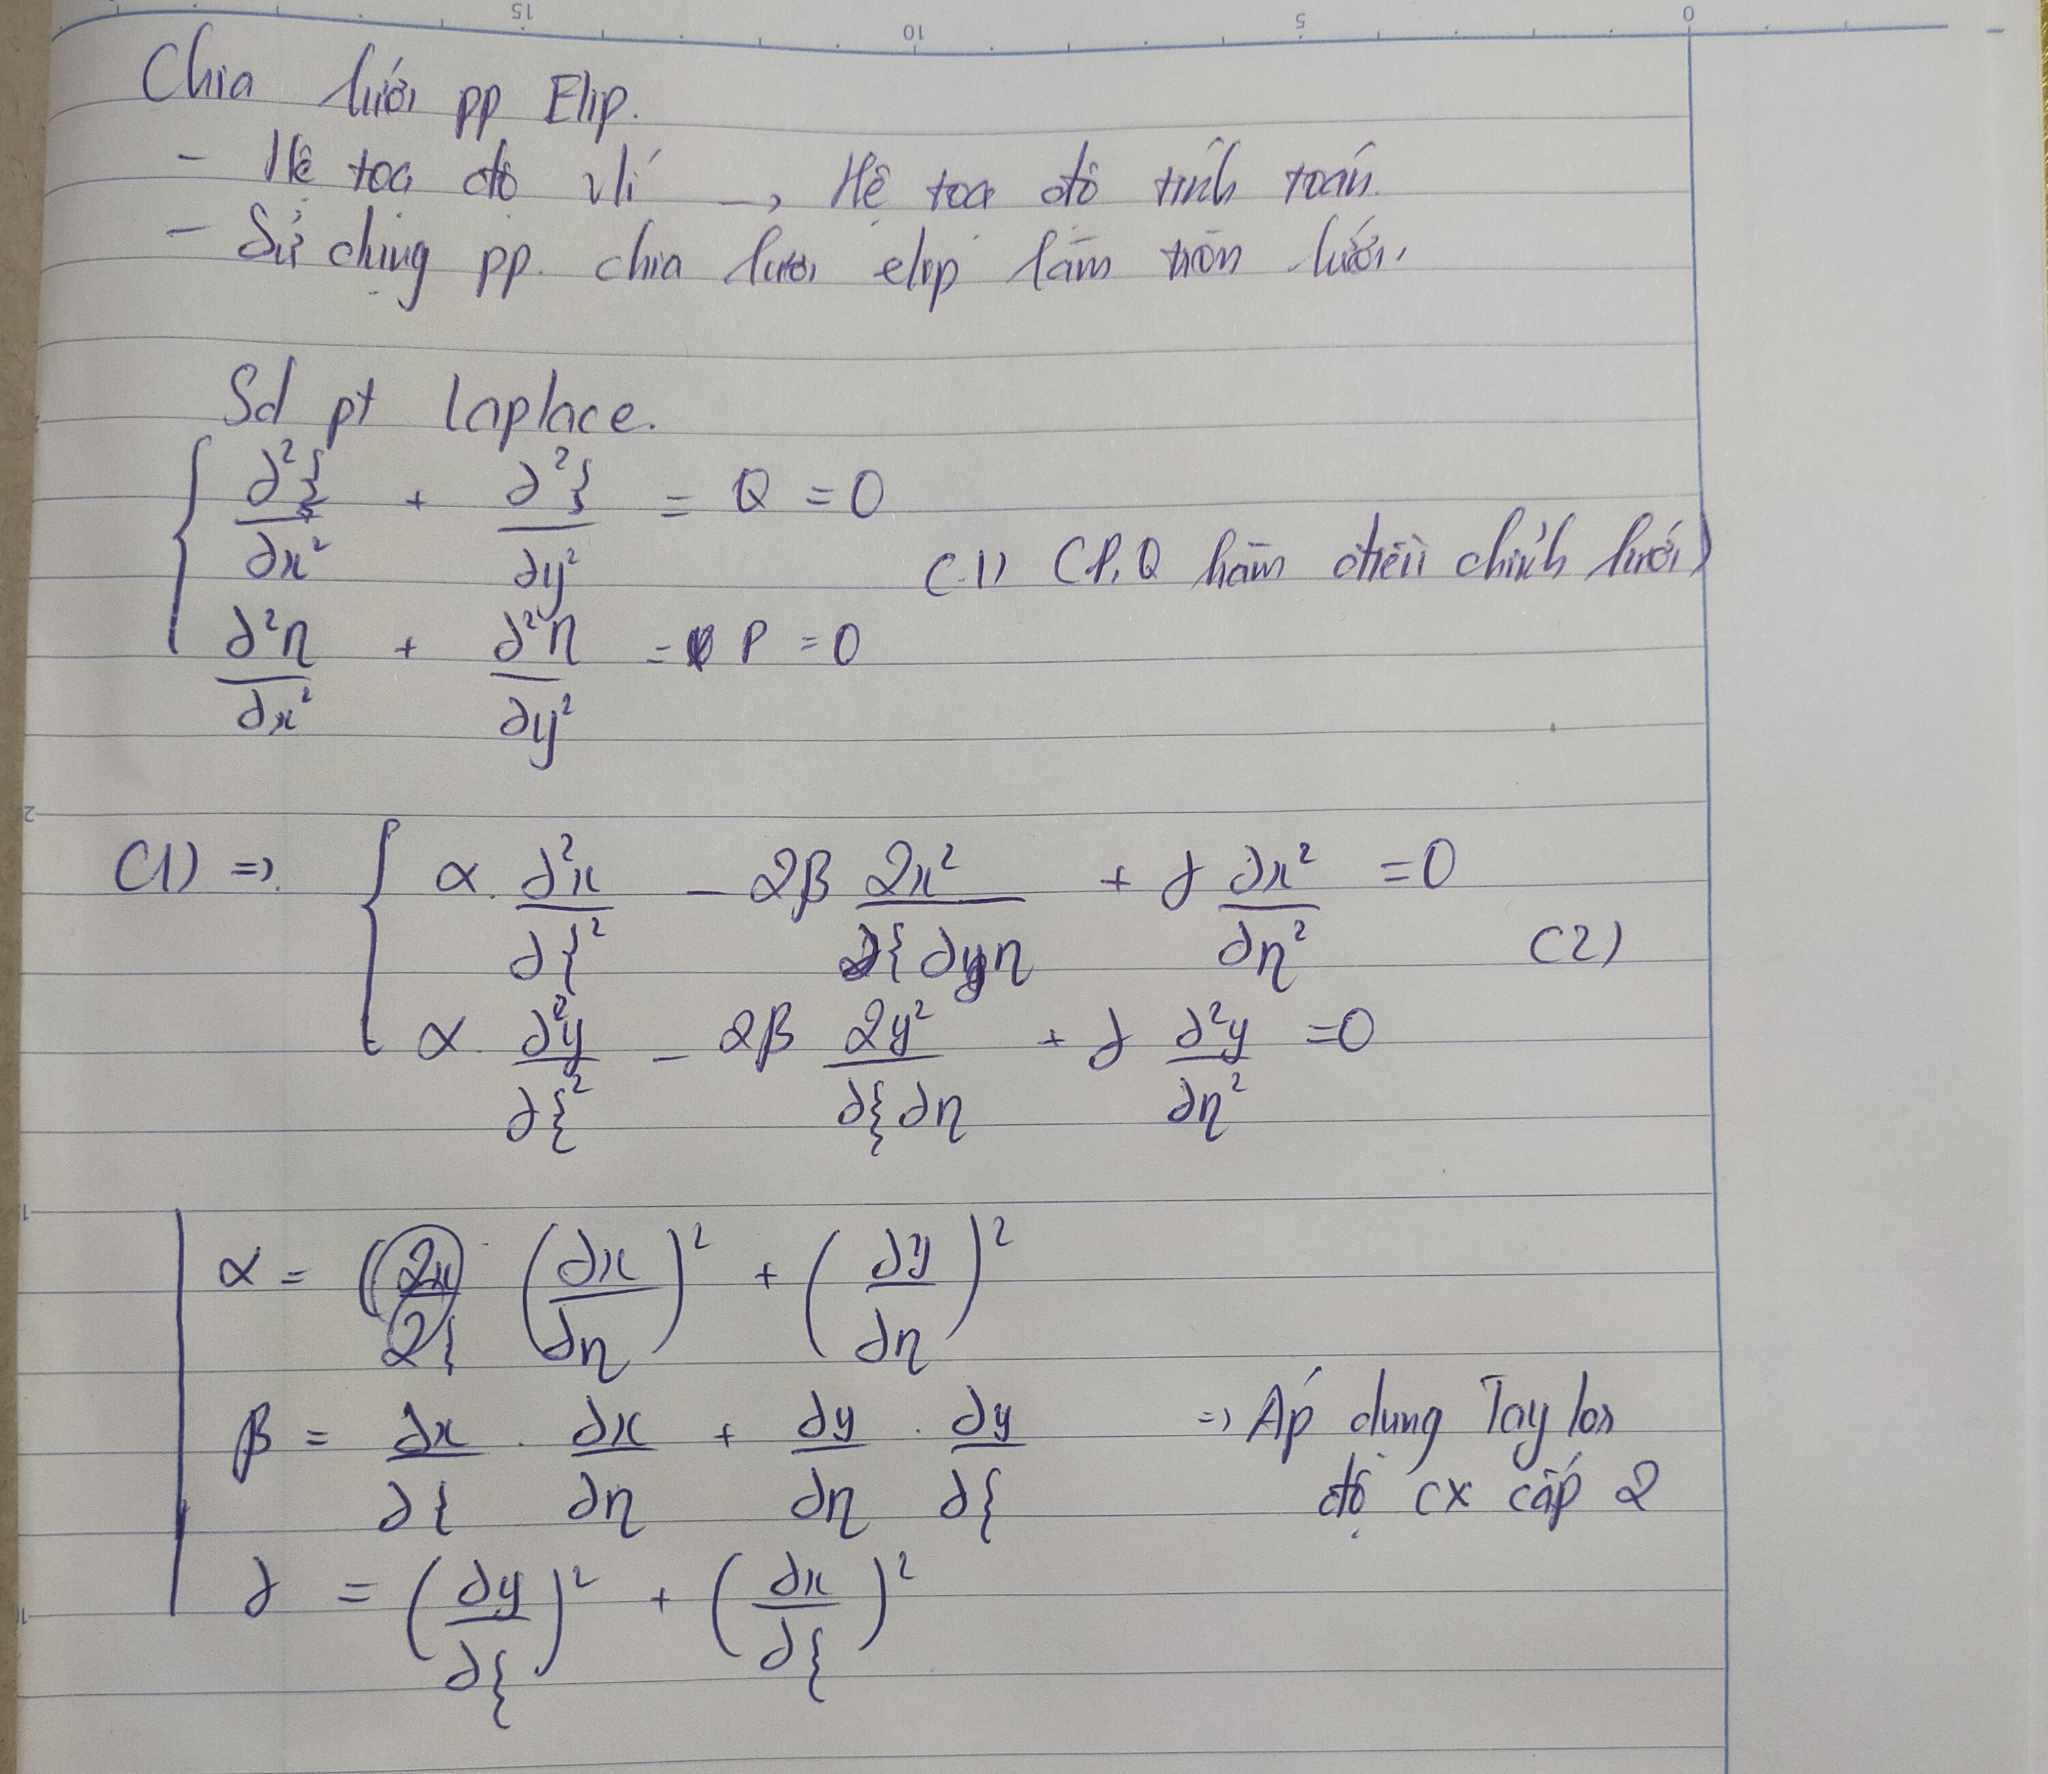 15 10 5 0
Chia lưới pp Elip.
- Hệ toạ độ vlí → Hệ toạ độ tính toán.
- Sử dụng pp. chia lưới elip làm trơn lưới.
Sd pt Laplace.
∂²ξ/∂x² + ∂²ξ/∂y² = Q = 0
(1) (P,Q hàm điều chỉnh lưới)
∂²η/∂x² + ∂²η/∂y² = P = 0
2
(1) => α. ∂²x/∂ξ² - 2β 2x²/∂ξ∂η + γ ∂x²/∂η² = 0
(2)
α. ∂²y/∂ξ² - 2β 2y²/∂ξ∂η + γ ∂²y/∂η² = 0
1
α = (∂x/∂η)² + (∂y/∂η)²
β = ∂x/∂ξ . ∂x/∂η + ∂y/∂η . ∂y/∂ξ => Áp dụng Taylor
độ cx cấp 2
γ = (∂y/∂ξ)² + (∂x/∂ξ)²